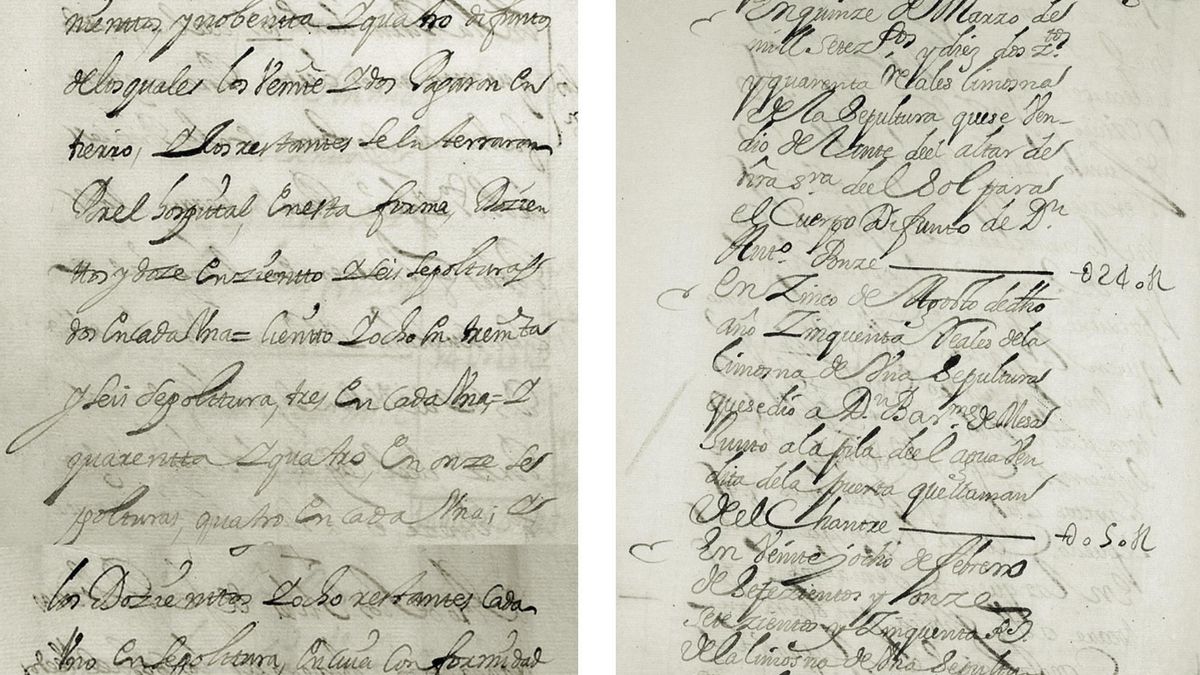 nientos, y nobentta Y quatro difuntos
de los quales los Veinte Y dos Pagaron en
tierro, Y los restantes se En terraron
Por el hospital, En esta forma, Dozien
ttos y doze En zientto Y seis sepolturas
dos En cada Vna = Cientto Y ocho En treinta
y seis Sepolttura, tres En Cada Vna, = Y
quarentta Y quatro, En onze Se
polturas, quatro En cada Vna; Y
los Dozienttos Y ocho restantes Cada
Vno En Sepolttura, En cuia Con formidad
En quinze de Marzo de
mill Setez.tos y diez dos z.tos
y quarenta reales limosna
de la Sepultura que se Ven-
dio de lante deel altar de
nra Sra deel Sol para
el Cuerpo Difunto de Dn
Anto. Ponze 024 o R
En Zinco de Agosto de dho
año Zinquenta Reales de la
limosna de Vna Sepultura
que se dio a Dn Barme de Mesa
Junto a la pila deel agua Ven
dita de la puerta que llaman
deel Chantre 0 5 o R
En Veinte y ocho de febrero
de Setezientos y onze
Setezientos y Zinquenta Rs
de la limosna de Vna Sepultu